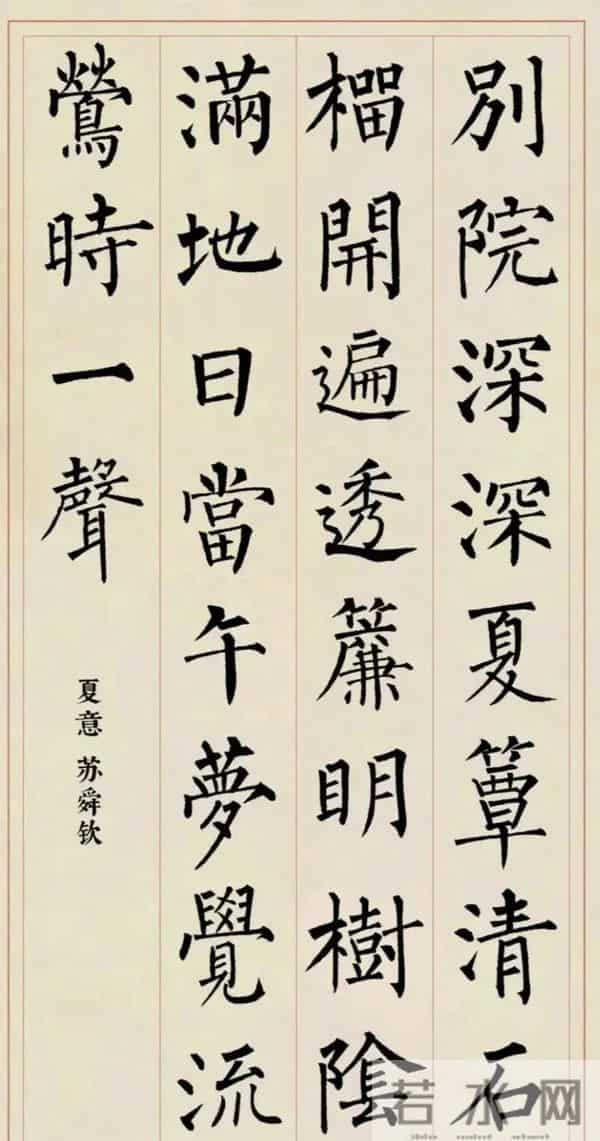 別院深深夏簟清石
榴開遍透簾明樹陰
滿地日當午夢覺流
鶯時一聲
夏意 苏舜钦
若水网